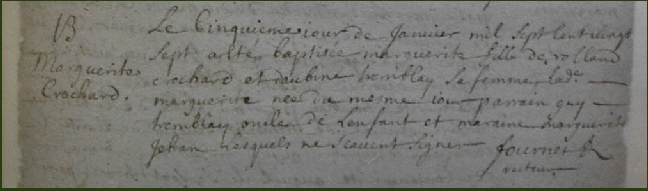 B
Marguerite
Crochard.
Le Cinquieme jour de Janvier mil sept cent vingt
sept a esté baptisée marguerite fille de rolland
crochard et daubine tremblay sa femme lad.e
marguerite nee du mesme jour parrain guy
tremblay oncle de Lenfant et maraine marguerite
Jehan lesquels ne scavent signer fournet
recteur